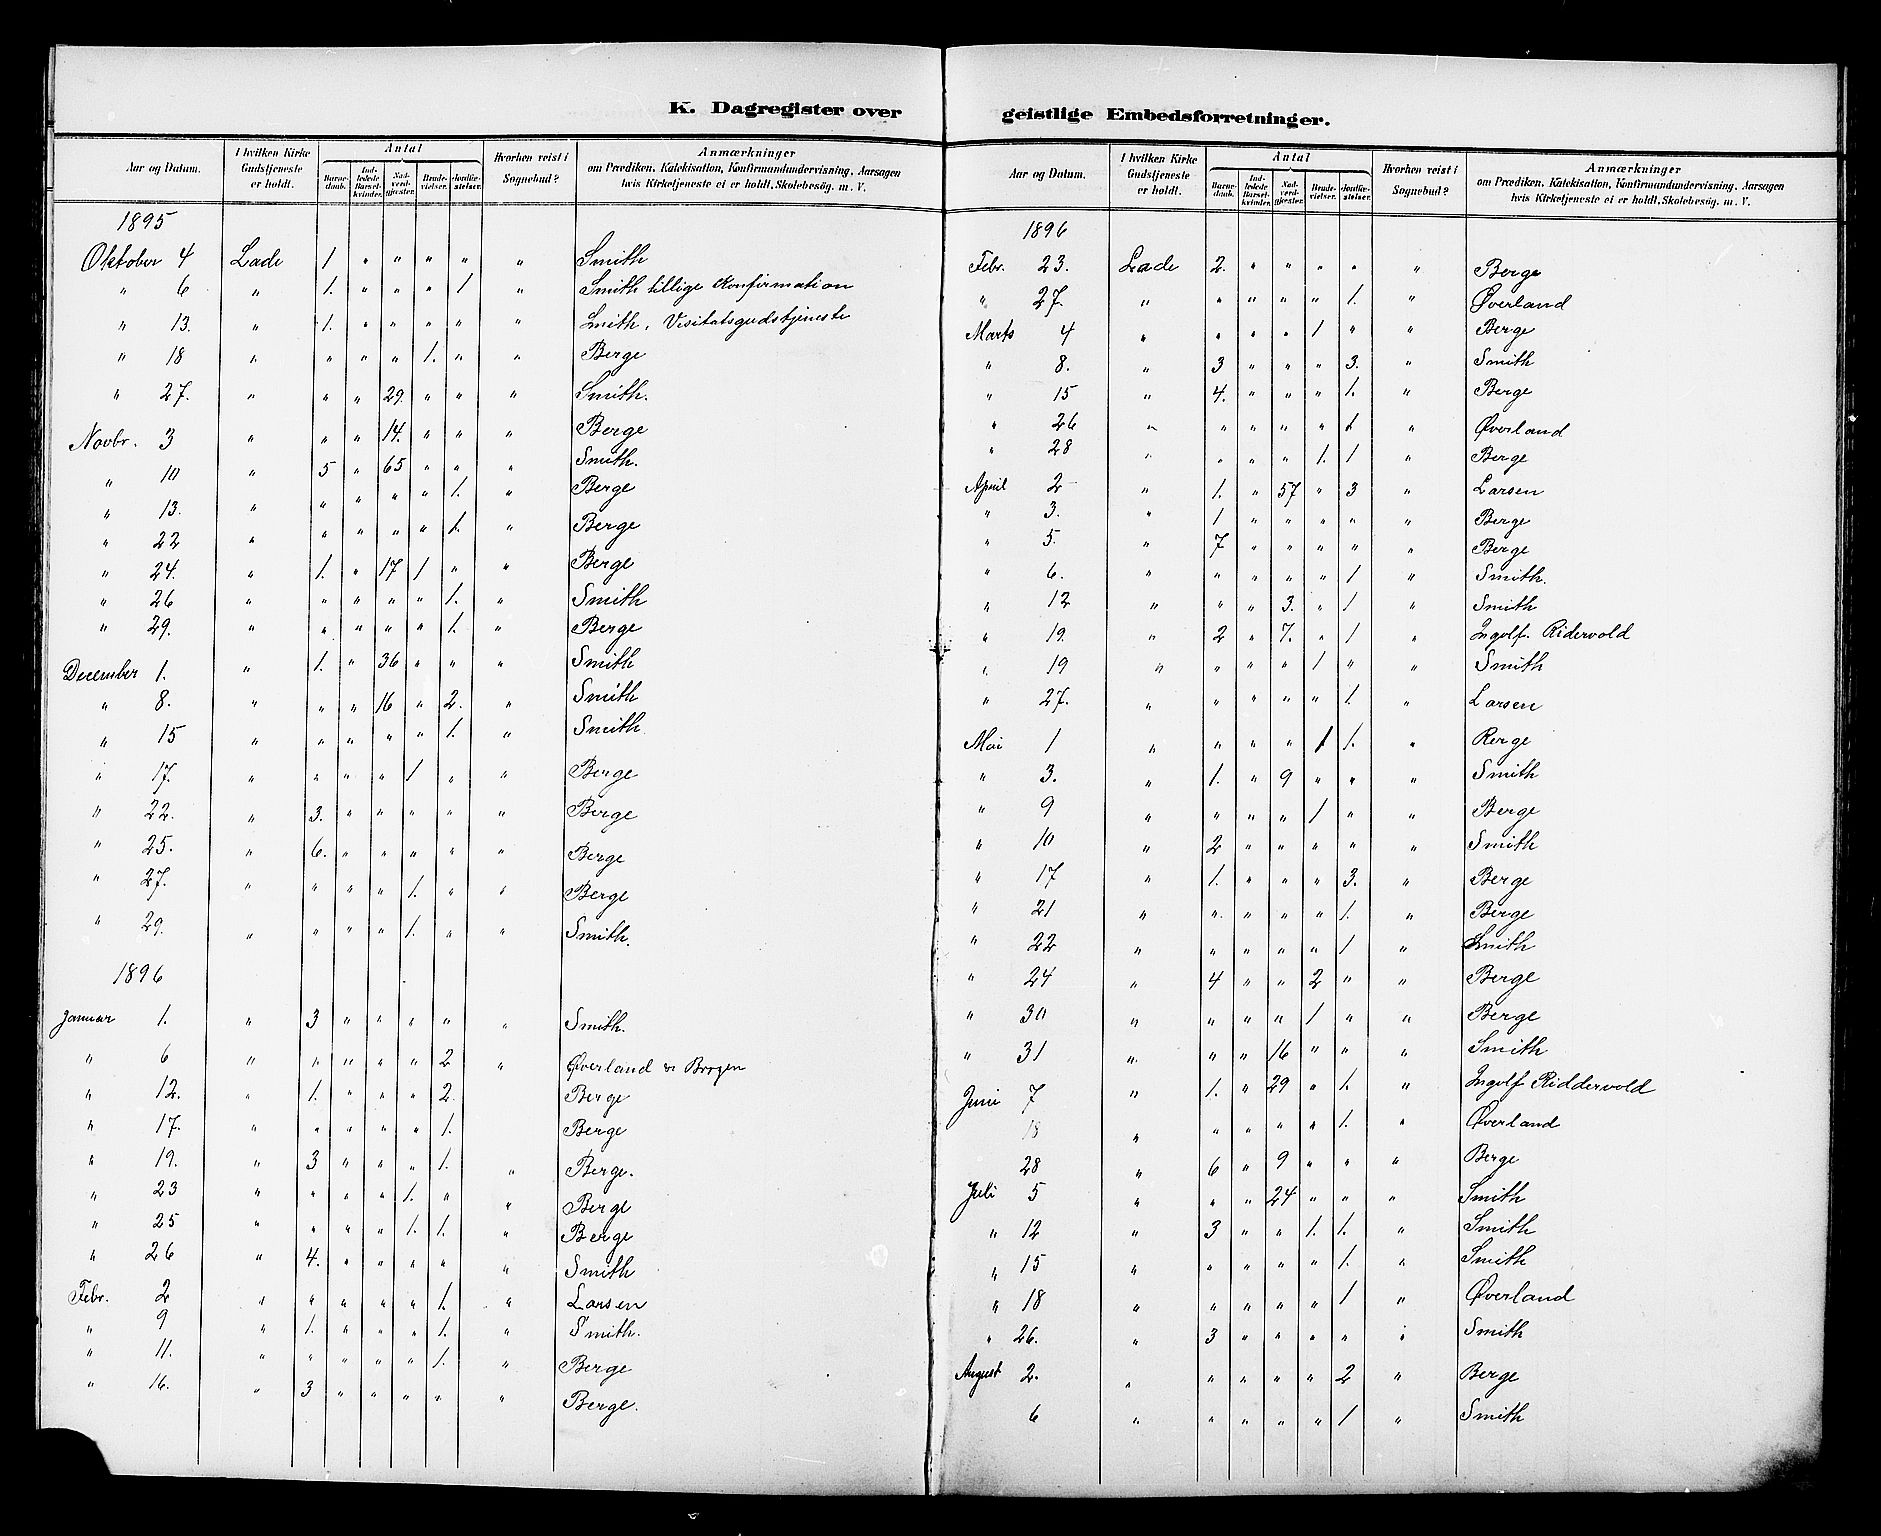 K. Dagregister over geistlige Embedsforretninger.
Aar og Datum. | I hvilken Kirke Gudstjeneste er holdt. | Antal | Barne-daab. | Ind-ledede Barsel-kvinder. | Nad-verd-gjester. | Brude-vielser. | Jordfæ-stelser. | Hvorhen reist i Sognebud? | Anmærkninger om Prædiken, Katekisation, Konfirmandundervisning, Aarsagen hvis Kirketjeneste ei er holdt, Skolebesøg. m. V.
1895
Oktober 4 Lade 1 " " " " " Smith
" 6 " 1. " " " 1 " Smith tillige Konfirmation
" 13. " 1. " " " " " Smith, Visitatsgudstjeneste
" 18 " " " " 1. " " Berge
" 27. " " " 29. " " " Smith.
Novbr. 3 " " " 14. " " " Berge
" 10 " 5 " 65 " " " Smith.
" 13. " " " " " 1. " Berge
" 22 " " " " " 1. " Berge
" 24. " 1. " 17 1 " " Berge
" 26 " " " " " 1. " Smith
" 29. " " " " " 1. " Berge
December 1. " 1. " 36 " " " Smith
" 8. " " " 16 " 2. " Smith
" 15 " " " " " 1. " Smith
" 17. " " " " 1 " " Berge
" 22. " 3. " " " " " Berge
" 25. " 6. " " " " " Berge
" 27. " " " " 1. " " Berge
" 29. " " " " 1. " " Smith.
1896
Januar 1. " 3 " " " " " Smith.
" 6 " " " " " 2 " Øverland
" 12. " 1. " " " 2. Berge
" 17. " " " " " 1. Berge
" 19. " 3 " " " 1. " Berge.
" 23 " " " " 1. " " Berge
" 25 " " " " 1. 1. " Berge
" 26 " 4. " " " " " Smith
Febr. 2 " " " " " 1. " Larsen
" 9 " 1. " " " 1. " Smith.
" 11. " " " " " 1. " Berge
" 16. " 3 " " " " " Berge.
Aar og Datum. | I hvilken Kirke Gudstjeneste er holdt. | Antal | Barne-daab. | Ind-ledede Barsel-kvinder. | Nad-verd-gjester. | Brude-vielser. | Jordfæ-stelser. | Hvorhen reist i Sognebud? | Anmærkninger om Prædiken, Katekisation, Konfirmandundervisning, Aarsagen hvis Kirketjeneste ei er holdt, Skolebesøg. m. V.
1896
Febr. 23. Lade 2. " " " " " Berge
" 27. " " " " " 1. " Øverland
Marts 4 " " " " 1 " " Berge
" 8. " 3 " " " 3. " Smith
" 15 " 4. " " " 1. " Berge
" 26 " " " " " 1 " Øverland
" 28 " " " " 1. 1 " Berge
April 2 " 1. " 57 " 3 " Larsen
" 3. " 1 " " " " " Berge
" 5. " 7 " " " " " Berge
" 6. " " " " " 1 " Smith.
" 12 " " " 3. " 1 " Smith
" 19. " 2 " 7. " 1 " Ingolf. Ridervold
" 19 " " " " 1 " " Smith
" 27. " " " " " 1. " Larsen
Mai 1 " " " " 1 1. " Berge
" 3. " 1. " 9 " " " Smith
" 9 " " " " 1 " " Berge
" 10 " 2 " " " " " Smith
" 17 " 1. " " " 3. " Berge
" 21 " " " " " 1. " Berge
" 22 " " " " " 1 " Smith
" 24 " 4 " " 2 " " Berge
" 30 " " " " 1 " " Berge
" 31 " " " 16 " " " Smith
Juni 7 " 1. " 29 " 1. " Ingolf Riddervold
18 " " " " " 1. " Øverland
28 " 6 " 9 " " " Berge
Juli 5 " " " 24 " " " Smith
" 12 " 3 " " 1. 1. " Smith
" 15 " " " " " 1. " Smith
" 18 " " " " " 1 " Øverland
" 26. " 3 " " " " " Smith
August 2. " " " " " 2 " Berge
6 " " " " " 1 " Smith